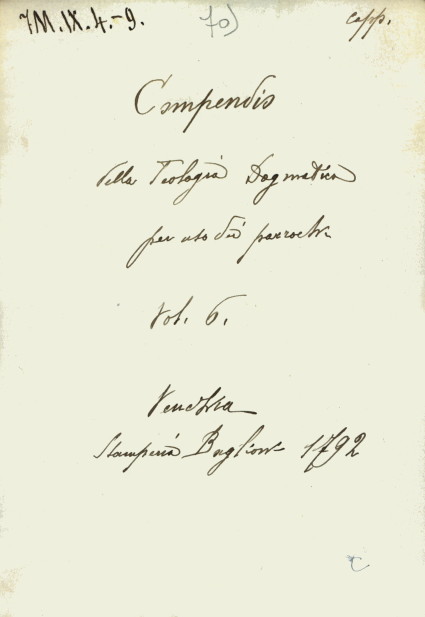 7M.IX.4.-9. 70) capp.
Compendio
della Teologia Dogmatica
per uso dei parrochi
Vol. 6.
Venezia
Stamperia Baglioni 1792